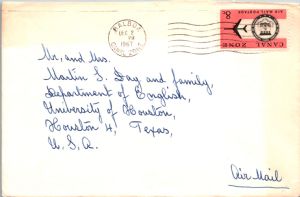 BALBOA
DEC 2
PM
1967
CANAL ZONE
8¢
AIR MAIL POSTAGE
CANAL ZONE
Mr. and Mrs.
Martin S. Day and family,
Department of English,
University of Houston,
Houston 4, Texas,
U.S.A.
Air Mail